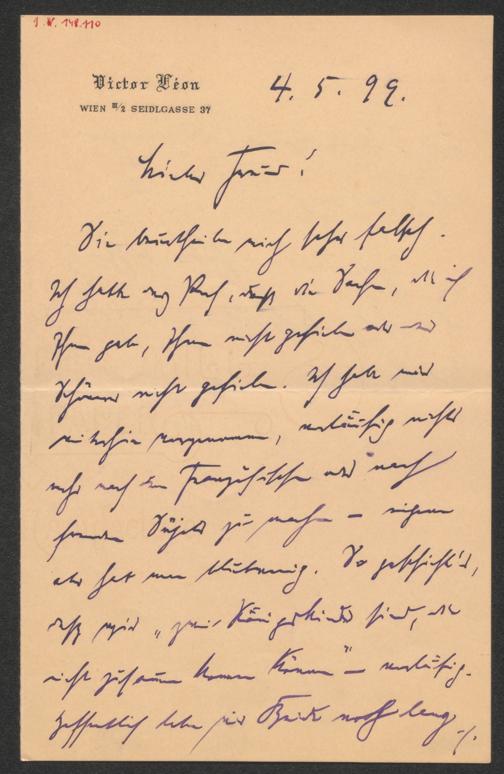 I. N. 148.110
Victor Léon
WIEN III/2 SEIDLGASSE 37
4. 5. 99.
Lieber Freund!
Sie beurtheilen mich sehr falsch.
Ich hatte das Pech, daß die Sachen, die ich
Ihnen gab, Ihnen nicht gefielen oder
nicht gefielen. Ich habe mir
mithin vorgenommen, vorläufig nichts
mehr nach dem Französischen oder nach
fremden Sujets zu machen – eigene
aber hat man blutwenig. So geschieht's,
daß wir „zwei Königskinder sind, die
nicht zusammen kommen können" – vorläufig.
Hoffentlich leben wir Beide noch lang